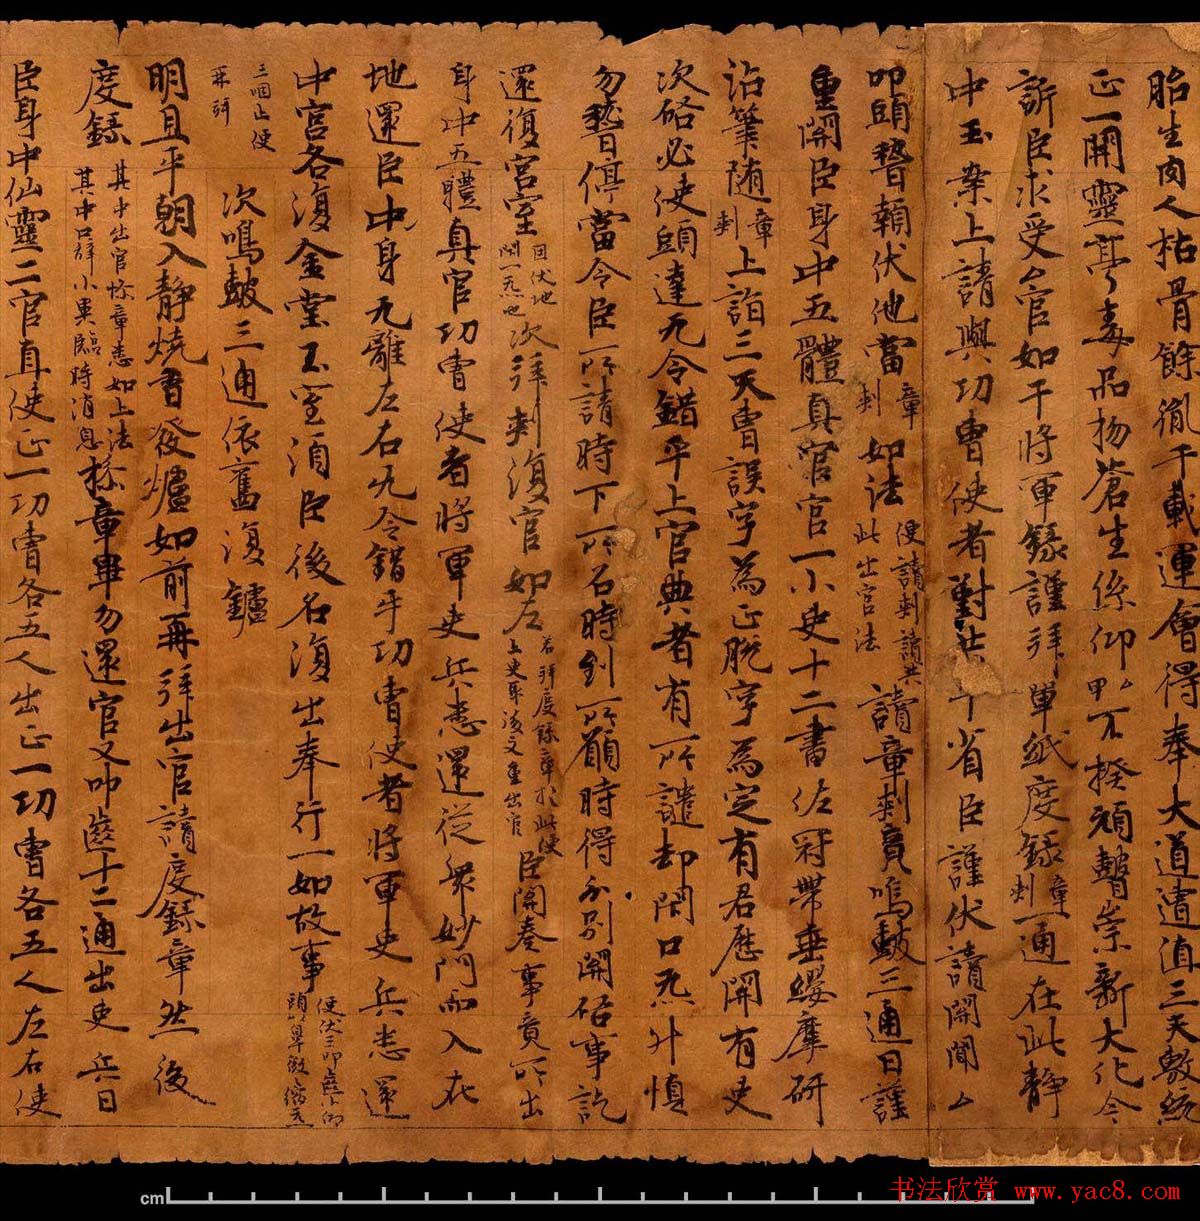 胎生肉人枯骨餘胤千載運會得奉大道遭值三天敷統
正一開靈亭毒品物蒼生係仰甲乙不揆頑瞽崇新大化今
訴臣求受厶官如干將軍籙謹拜單紙度籙章刾一通在此靜
中玉案上請與功曹使者對共 省臣謹伏讀開聞厶
叩頭稽顙伏地當章刾如法便讀刾讀其此出官法讀章刾竟鳴鼓三通曰謹
重開臣身中五體真官官一小吏十二書佐冠帶垂纓摩研
沾筆隨章刾上詣三天曹誤字為正脫字為定有君歷關有吏
次啓必使頭達无令錯乎上官典者有所譴却閇口炁升慎
勿稽停當令臣所請時下所召時到所願時得分別開啓事訖
還復宮室因伏地閇一炁也次拜刾復官如左若拜度籙章於此便上吏取後文重出官臣開奏事竟所出
身中五體真官功曹使者將軍吏兵悉還從衆妙門而入在
地還臣中身无離左右无令錯乎功曹使者將軍吏兵悉還
中宮各復金堂玉室須臣後名復出奉行一如故事便伏三叩 仰頭以鼻微 炁
三咽止便再拜
次鳴鼓三通依舊復鑪
明旦平朝入靜燒香發爐如前再拜出官請度籙章然後
度籙其中出官 章悉如上法其中口辭小異臨時消息 章畢勿還官又叩齒十二通出吏兵曰
臣身中仙靈二官直使正一功曹各五人出正一功曹各五人左右使
cm
书法欣赏 www.yac8.com